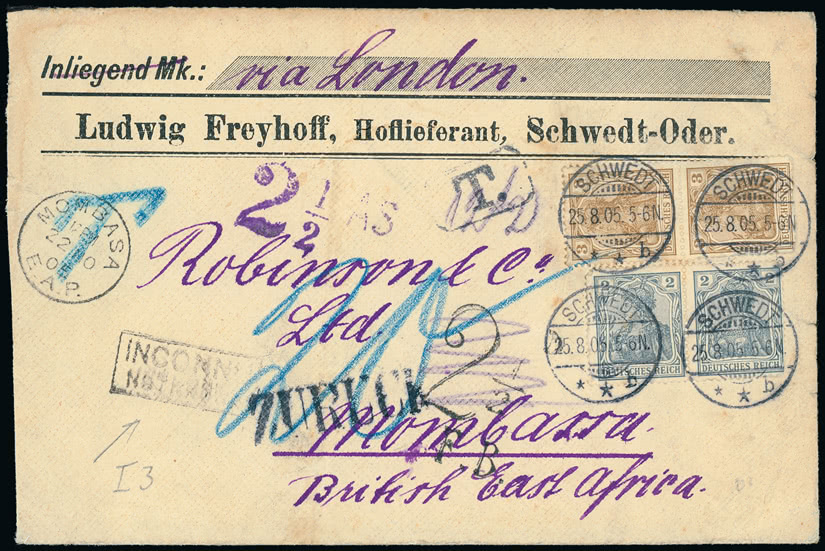 Inliegend Mk.: via London.
Ludwig Freyhoff, Hoflieferant, Schwedt-Oder.
2 1/2 AS
T.
SCHWEDT
25.8.05. 5-6N.
* * b
SCHWEDT
25.8.05. 5-6N.
* * b
3
3
DEUTSCHES REICH
MOMBASA
22
E.A.P.
T
Robinson & Co
Ltd.
20
2
2
2
DEUTSCHES REICH
SCHWEDT
25.8.05. 5-6N.
* * b
SCHWEDT
25.8.05. 5-6N.
* * b
INCONN
ZURÜCK
2 1/2
F.B.
Mombassa.
British East Africa.
I3